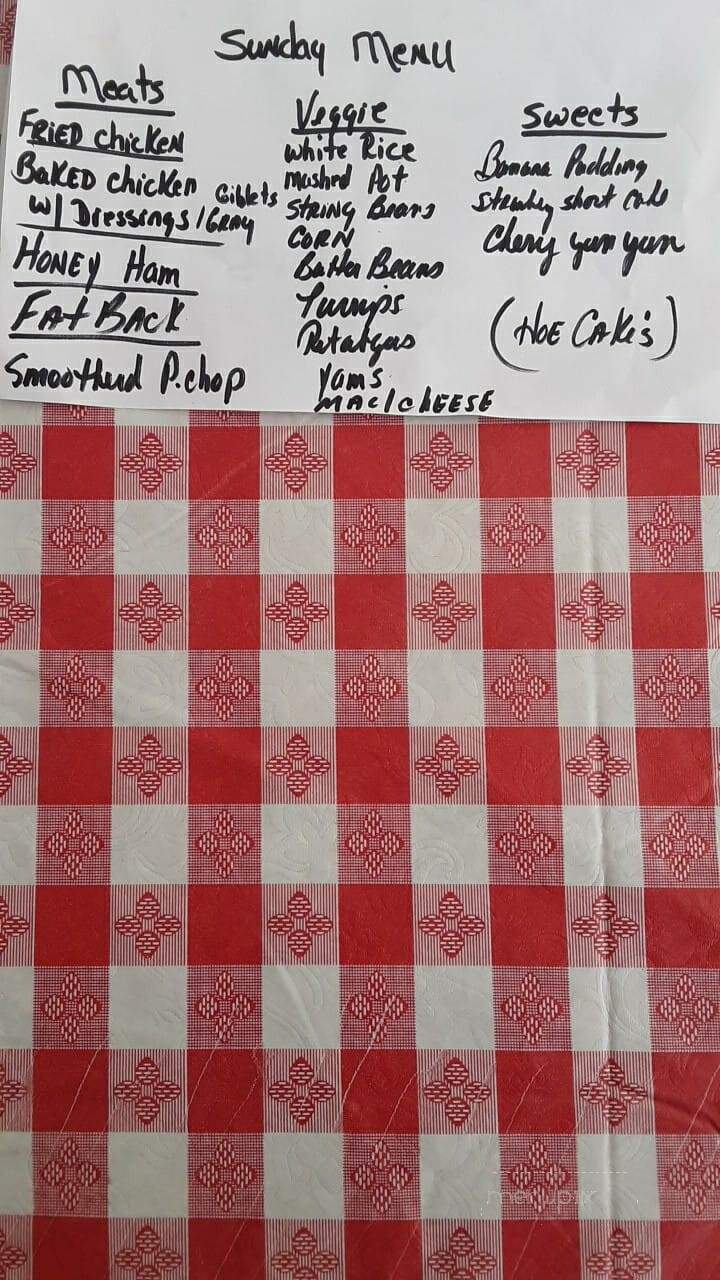 Sunday Menu
Meats
FRiED chicKEN
BaKED chicKEN
Giblets
W/ Dressings / GRAY
HONEY Ham
FAt BACK
Smootherd P.chop
Veggie
White Rice
Mashed Pot
STRING Beans
CORN
Butter Beans
Turnips
Rutabagas
Yams
MAC/ChEESE
Sweets
Banana Pudding
Strawbey short cake
Chery yum yum
(HOE CAKe's)
menupix